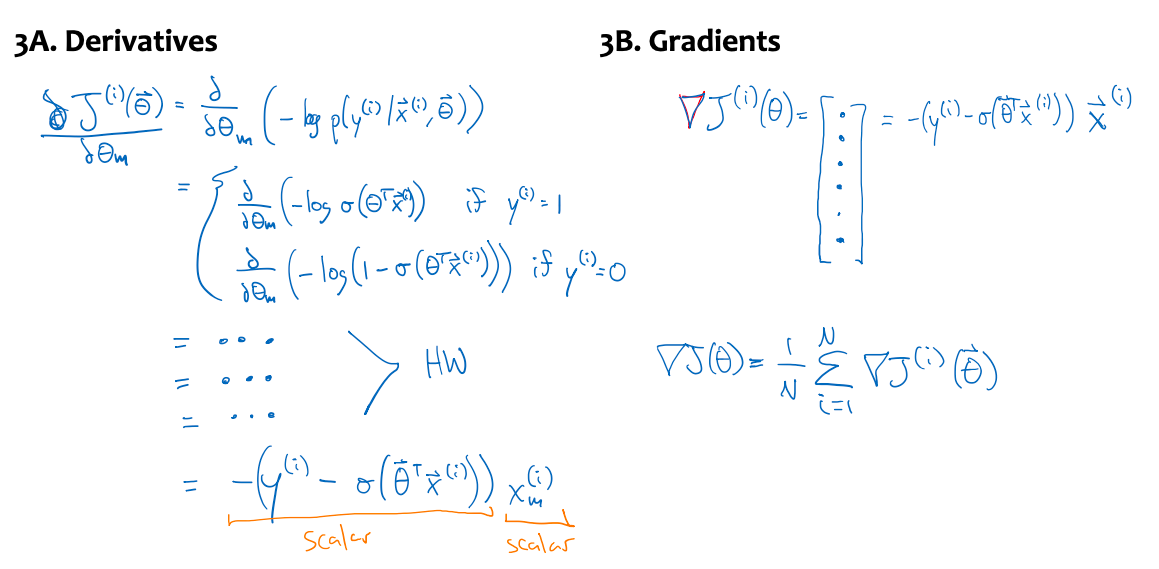 3A. Derivatives
∂J^(i)(θ⃗)/∂θ_m = ∂/∂θ_m (-log p(y^(i) | x⃗^(i), θ⃗))
= { ∂/∂θ_m (-log σ(θ^T x⃗^(i))) if y^(i) = 1
∂/∂θ_m (-log(1 - σ(θ^T x⃗^(i)))) if y^(i) = 0
= ...
= ... > HW
= ...
= -(y^(i) - σ(θ⃗^T x⃗^(i))) x_m^(i)
scalar scalar
3B. Gradients
∇J^(i)(θ) = [⋮] = -(y^(i) - σ(θ⃗^T x⃗^(i))) x⃗^(i)
∇J(θ) = 1/N Σ_{i=1}^N ∇J^(i)(θ⃗)